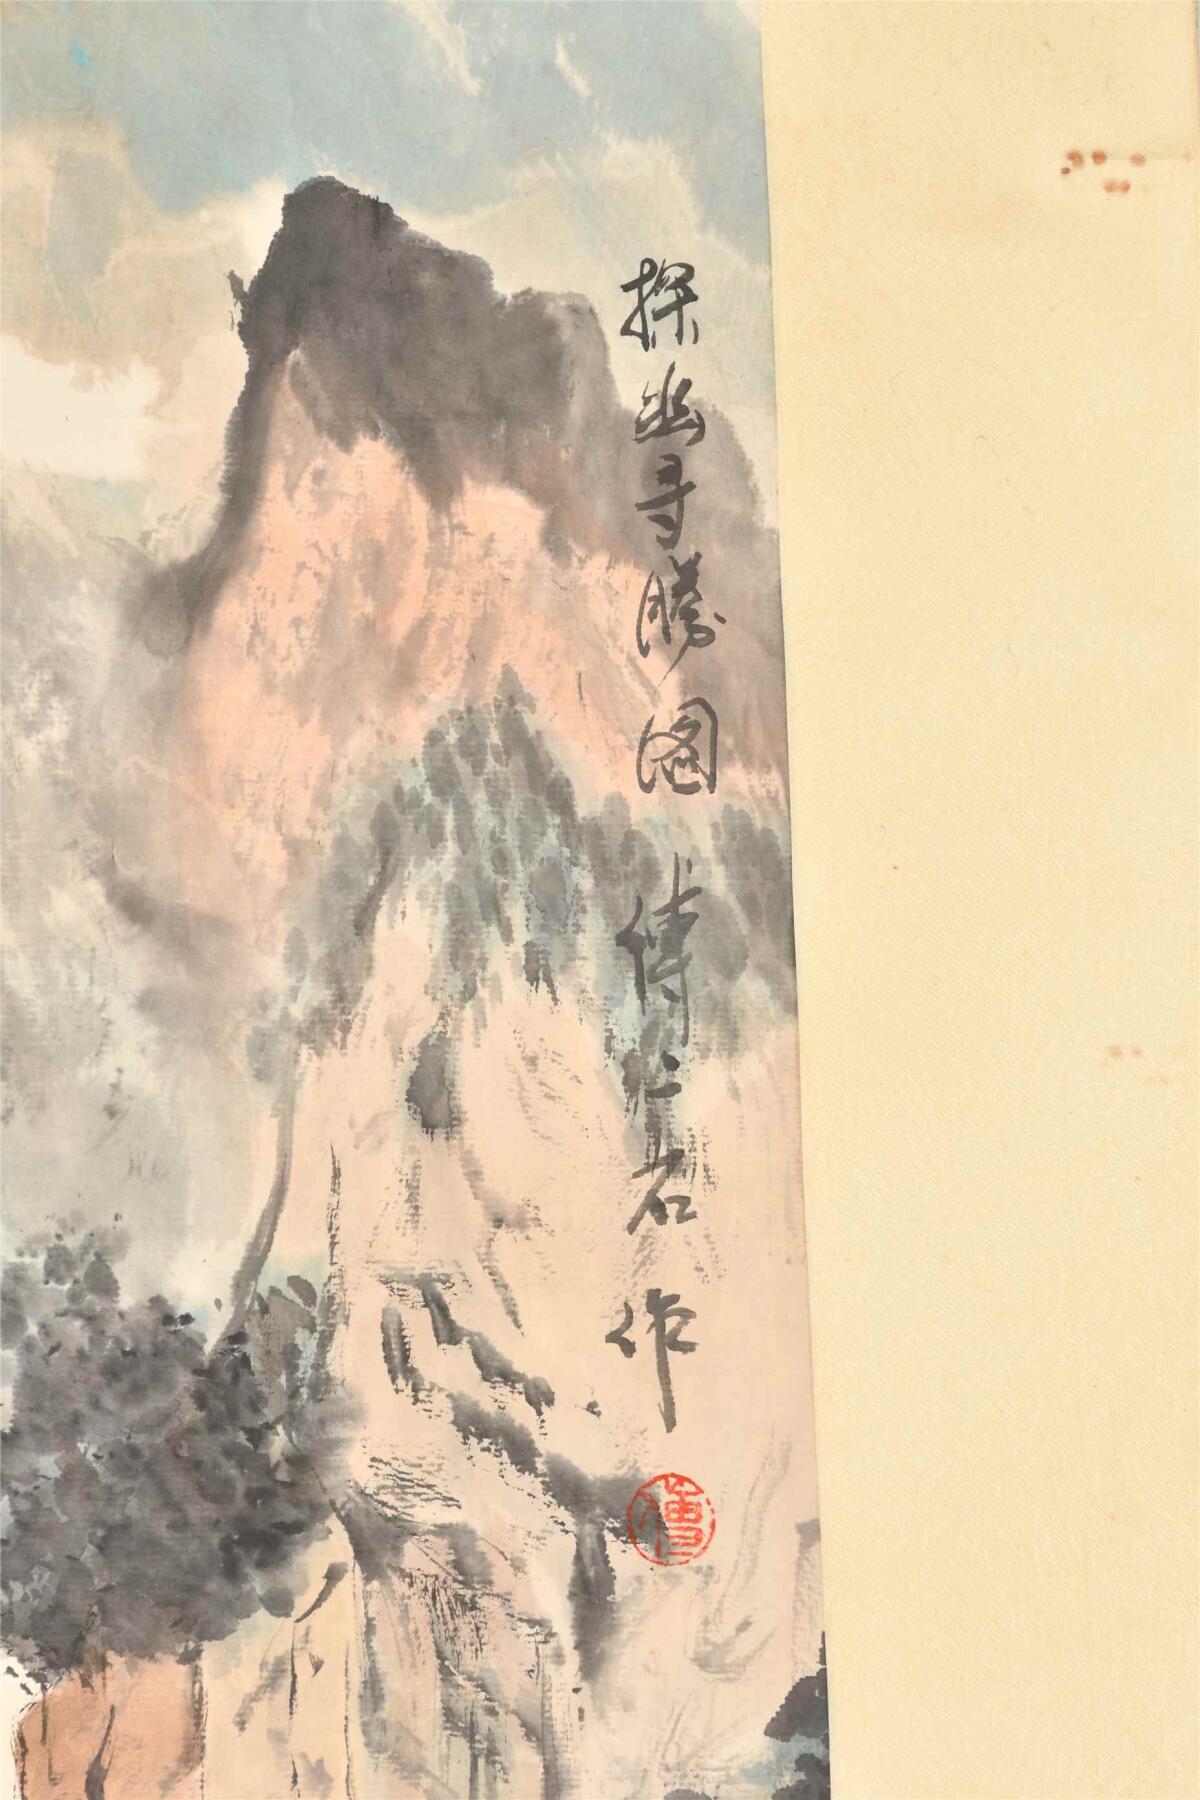 探幽寻勝图 傅二石作
傅